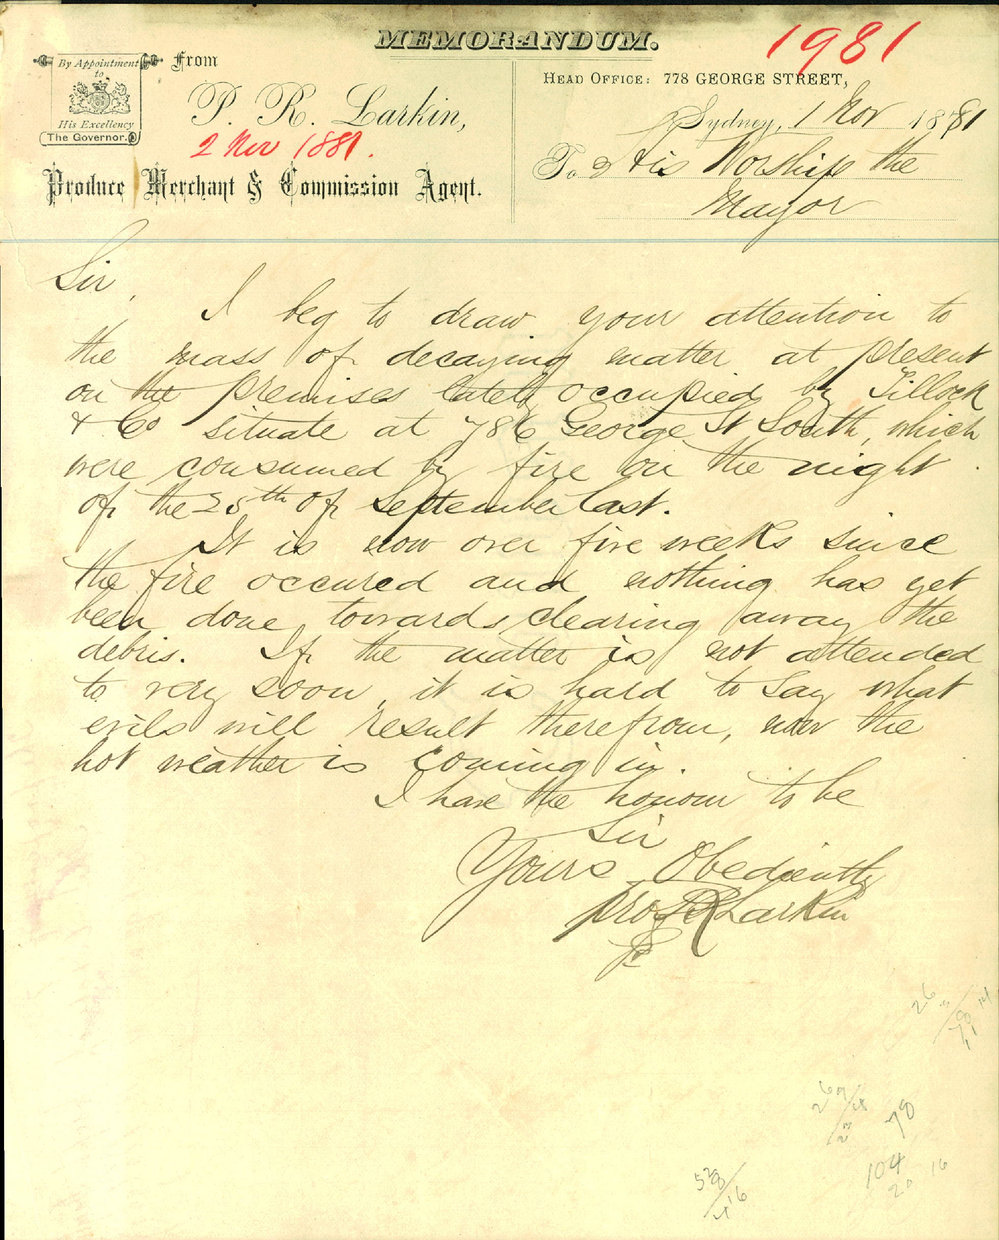 MEMORANDUM.
1981
By Appointment
to
His Excellency
The Governor.
From
P. R. Larkin,
2 Nov 1881.
Produce Merchant & Commission Agent.
HEAD OFFICE: 778 GEORGE STREET,
Sydney, 1 Nov 1881
To His Worship the
Mayor
Sir,
I beg to draw your attention to
the mass of decaying matter at present
on the premises lately occupied by Tillock
& Co situate at 786 George St South, which
were consumed by fire on the night
of the 25th of September last.
It is now over five weeks since
the fire occured and nothing has yet
been done towards clearing away the
debris. If the matter is not attended
to very soon, it is hard to say what
evils will result therefrom, now the
hot weather is coming in.
I have the honour to be
Sir
Yours Obediently
pro P R Larkin
26
78
104
20
16